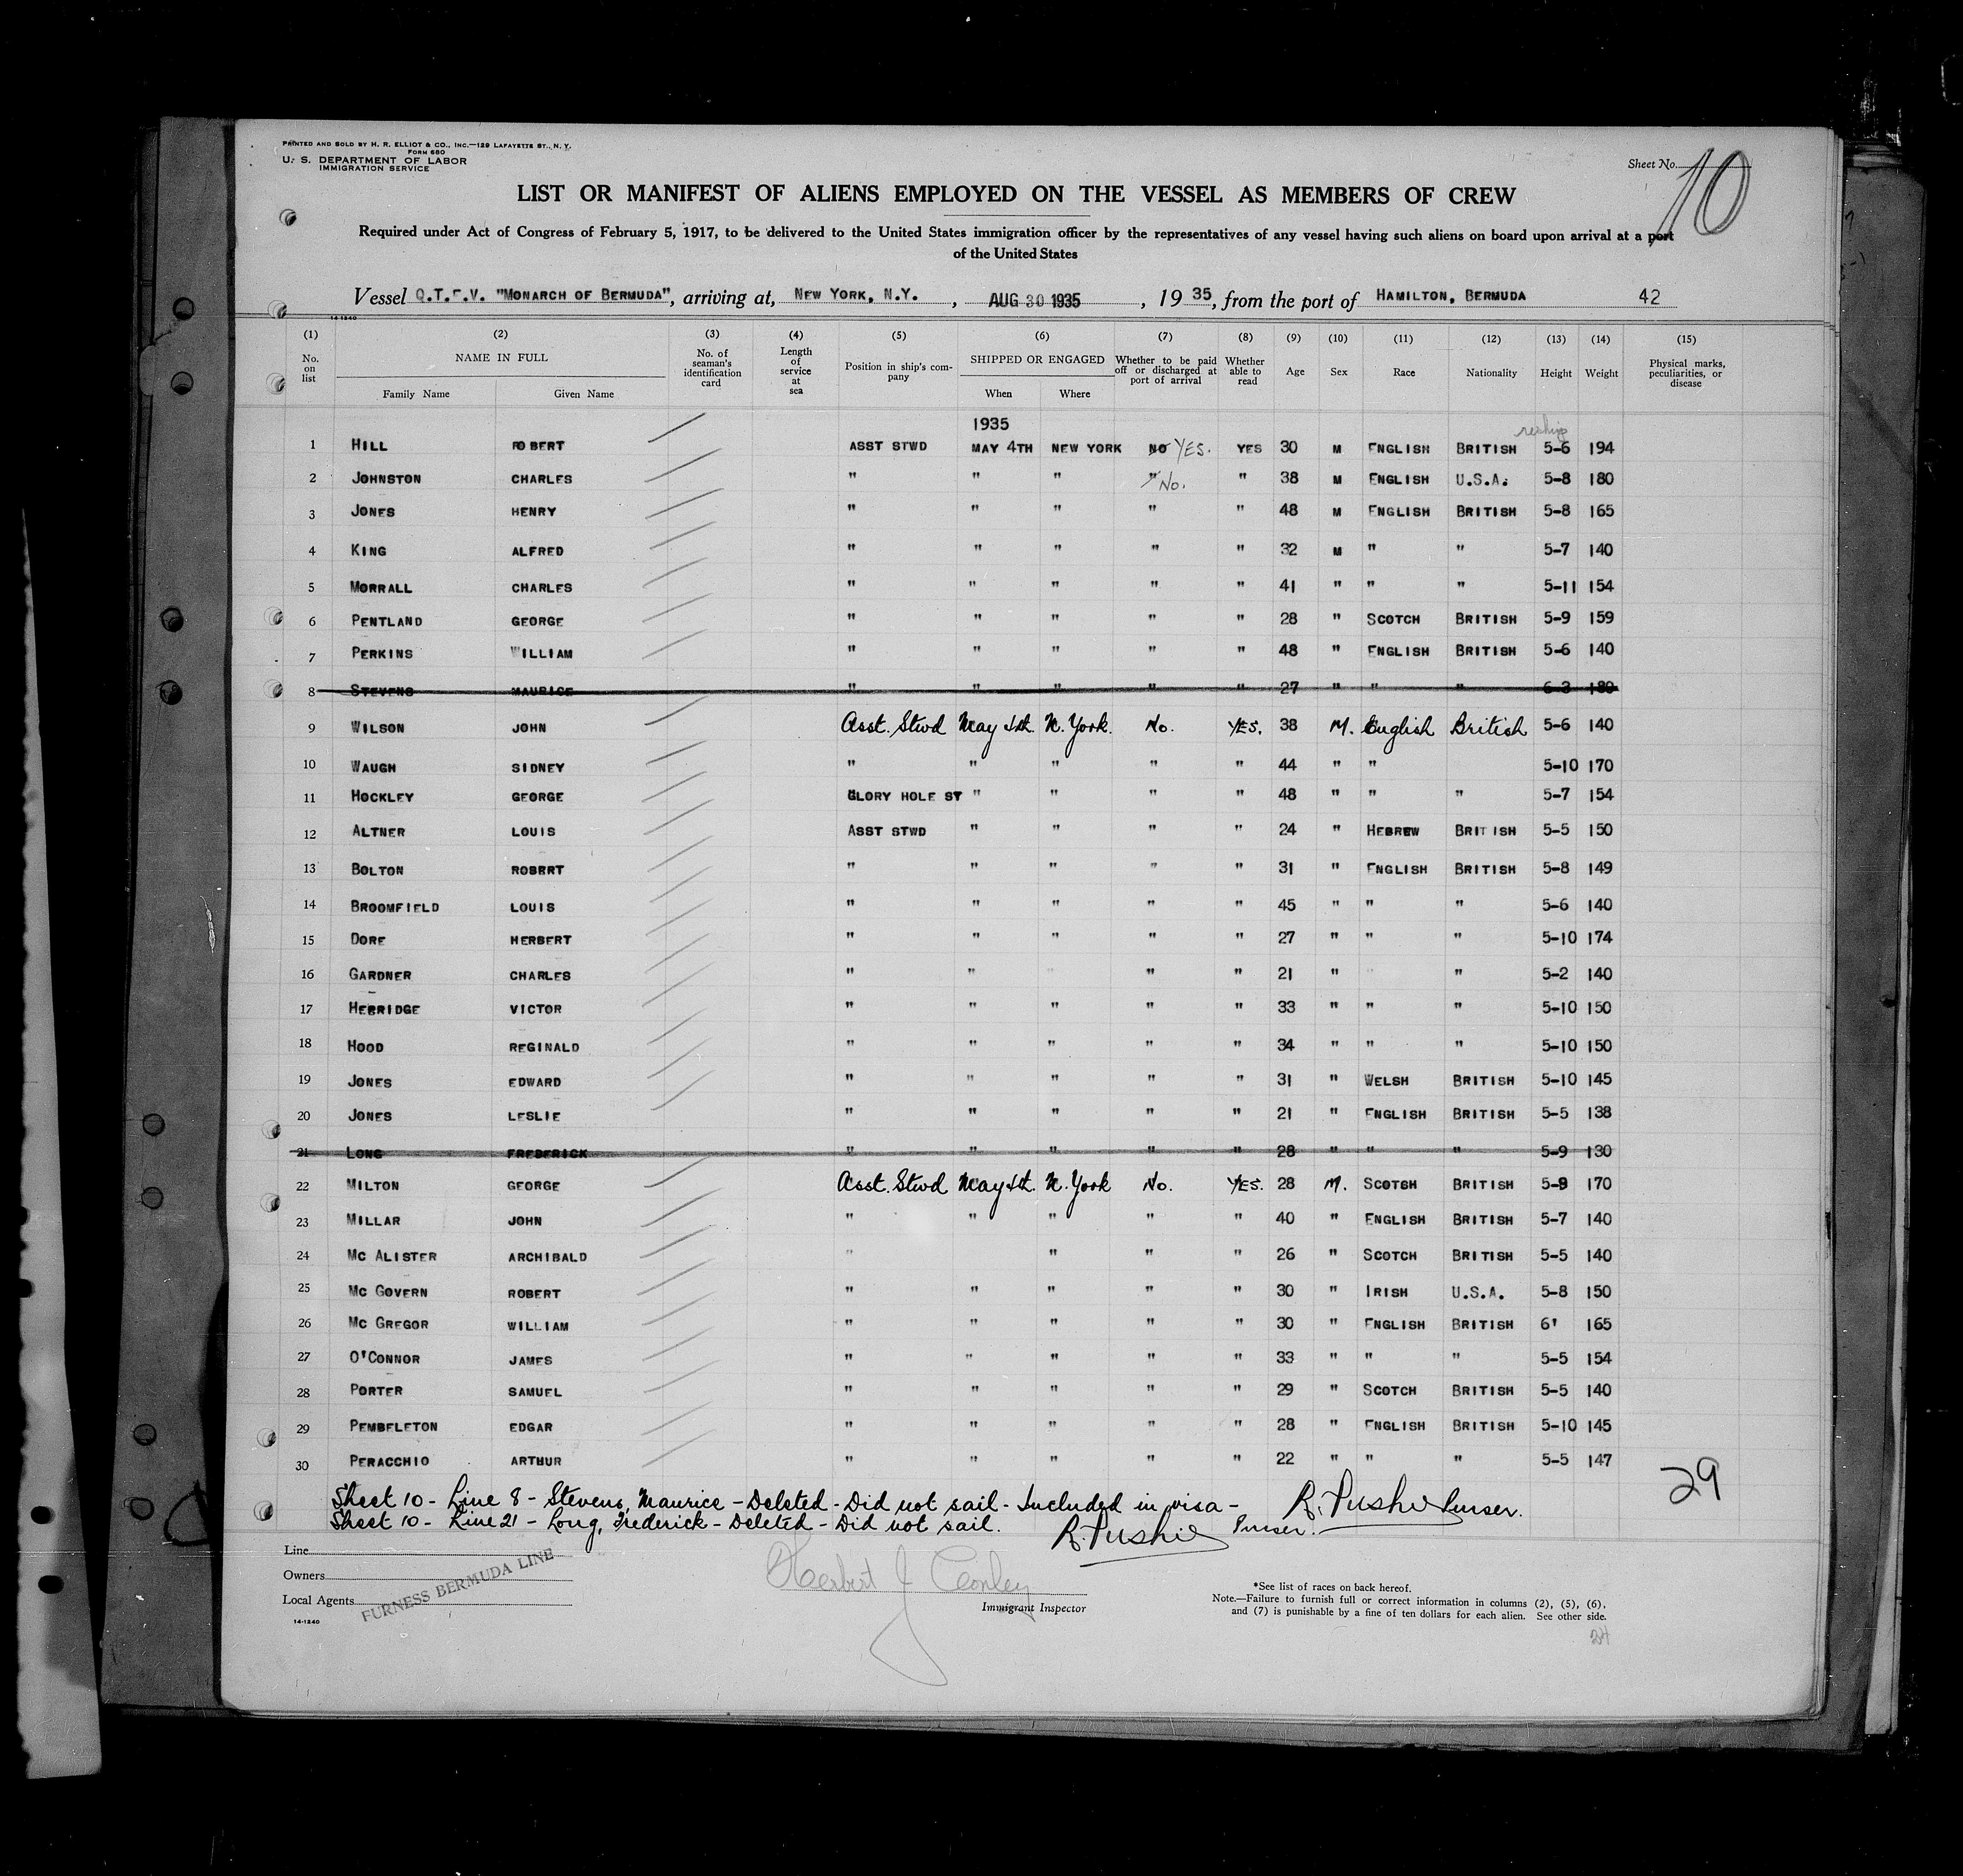 PRINTED AND SOLD BY H. R. ELLIOT & CO., INC.—129 LAFAYETTE ST., N. Y.
FORM 680
U. S. DEPARTMENT OF LABOR
IMMIGRATION SERVICE
Sheet No. 10
LIST OR MANIFEST OF ALIENS EMPLOYED ON THE VESSEL AS MEMBERS OF CREW
Required under Act of Congress of February 5, 1917, to be delivered to the United States immigration officer by the representatives of any vessel having such aliens on board upon arrival at a port
of the United States
Vessel Q.T.E.V. "MONARCH OF BERMUDA", arriving at, NEW YORK, N.Y. , AUG 30 1935 , 19 35, from the port of HAMILTON, BERMUDA 42
14-1240
(1) (2) (3) (4) (5) (6) (7) (8) (9) (10) (11) (12) (13) (14) (15)
No. on list NAME IN FULL Family Name Given Name No. of seaman's identification card Length of service at sea Position in ship's company SHIPPED OR ENGAGED When Where Whether to be paid off or discharged at port of arrival Whether able to read Age Sex Race Nationality Height Weight Physical marks, peculiarities, or disease
1935
reship
1 HILL ROBERT ASST STWD MAY 4TH NEW YORK NO YES. YES 30 M ENGLISH BRITISH 5-6 194
2 JOHNSTON CHARLES " " " " No. " 38 M ENGLISH U.S.A. 5-8 180
3 JONES HENRY " " " " " 48 M ENGLISH BRITISH 5-8 165
4 KING ALFRED " " " " " 32 M " " 5-7 140
5 MORRALL CHARLES " " " " " 41 " " " 5-11 154
6 PENTLAND GEORGE " " " " " 28 " SCOTCH BRITISH 5-9 159
7 PERKINS WILLIAM " " " " " 48 " ENGLISH BRITISH 5-6 140
8 STEVENS MAURICE " " " " " 27 " " " 6-3 180
9 WILSON JOHN Asst. Stwd May 4th. N. York. No. YES. 38 M. English British 5-6 140
10 WAUGH SIDNEY " " " " " 44 " " 5-10 170
11 HOCKLEY GEORGE GLORY HOLE ST " " " " 48 " " " 5-7 154
12 ALTNER LOUIS ASST STWD " " " " 24 " HEBREW BRITISH 5-5 150
13 BOLTON ROBRRT " " " " " 31 " ENGLISH BRITISH 5-8 149
14 BROOMFIELD LOUIS " " " " " 45 " " " 5-6 140
15 DORE HERBERT " " " " " 27 " " " 5-10 174
16 GARDNER CHARLES " " " " " 21 " " " 5-2 140
17 HERRIDGE VICTOR " " " " " 33 " " " 5-10 150
18 HOOD REGINALD " " " " " 34 " " " 5-10 150
19 JONES EDWARD " " " " " 31 " WELSH BRITISH 5-10 145
20 JONES LESLIE " " " " " 21 " ENGLISH BRITISH 5-5 138
21 LONG FREDERICK " " " " " 28 " " " 5-9 130
22 MILTON GEORGE Asst. Stwd May 4th. N. York No. YES. 28 M. SCOTCH BRITISH 5-9 170
23 MILLAR JOHN " " " " " 40 " ENGLISH BRITISH 5-7 140
24 MC ALISTER ARCHIBALD " " " " 26 " SCOTCH BRITISH 5-5 140
25 MC GOVERN ROBERT " " " " " 30 " IRISH U.S.A. 5-8 150
26 MC GREGOR WILLIAM " " " " " 30 " ENGLISH BRITISH 6' 165
27 O'CONNOR JAMES " " " " " 33 " " " 5-5 154
28 PORTER SAMUEL " " " " " 29 " SCOTCH BRITISH 5-5 140
29 PEMBELETON EDGAR " " " " " 28 " ENGLISH BRITISH 5-10 145
30 PERACCHIO ARTHUR " " " " " 22 " " " 5-5 147
29
Sheet 10 - Line 8 - Stevens, Maurice - Deleted - Did not sail - Included in visa - R. Pushie Purser.
Sheet 10 - Line 21 - Long, Frederick - Deleted - Did not sail. R. Pushie Purser.
Line
Owners
Local Agents
FURNESS BERMUDA LINE
14-1240
Herbert J
Immigrant Inspector
*See list of races on back hereof.
Note.—Failure to furnish full or correct information in columns (2), (5), (6),
and (7) is punishable by a fine of ten dollars for each alien. See other side.
24